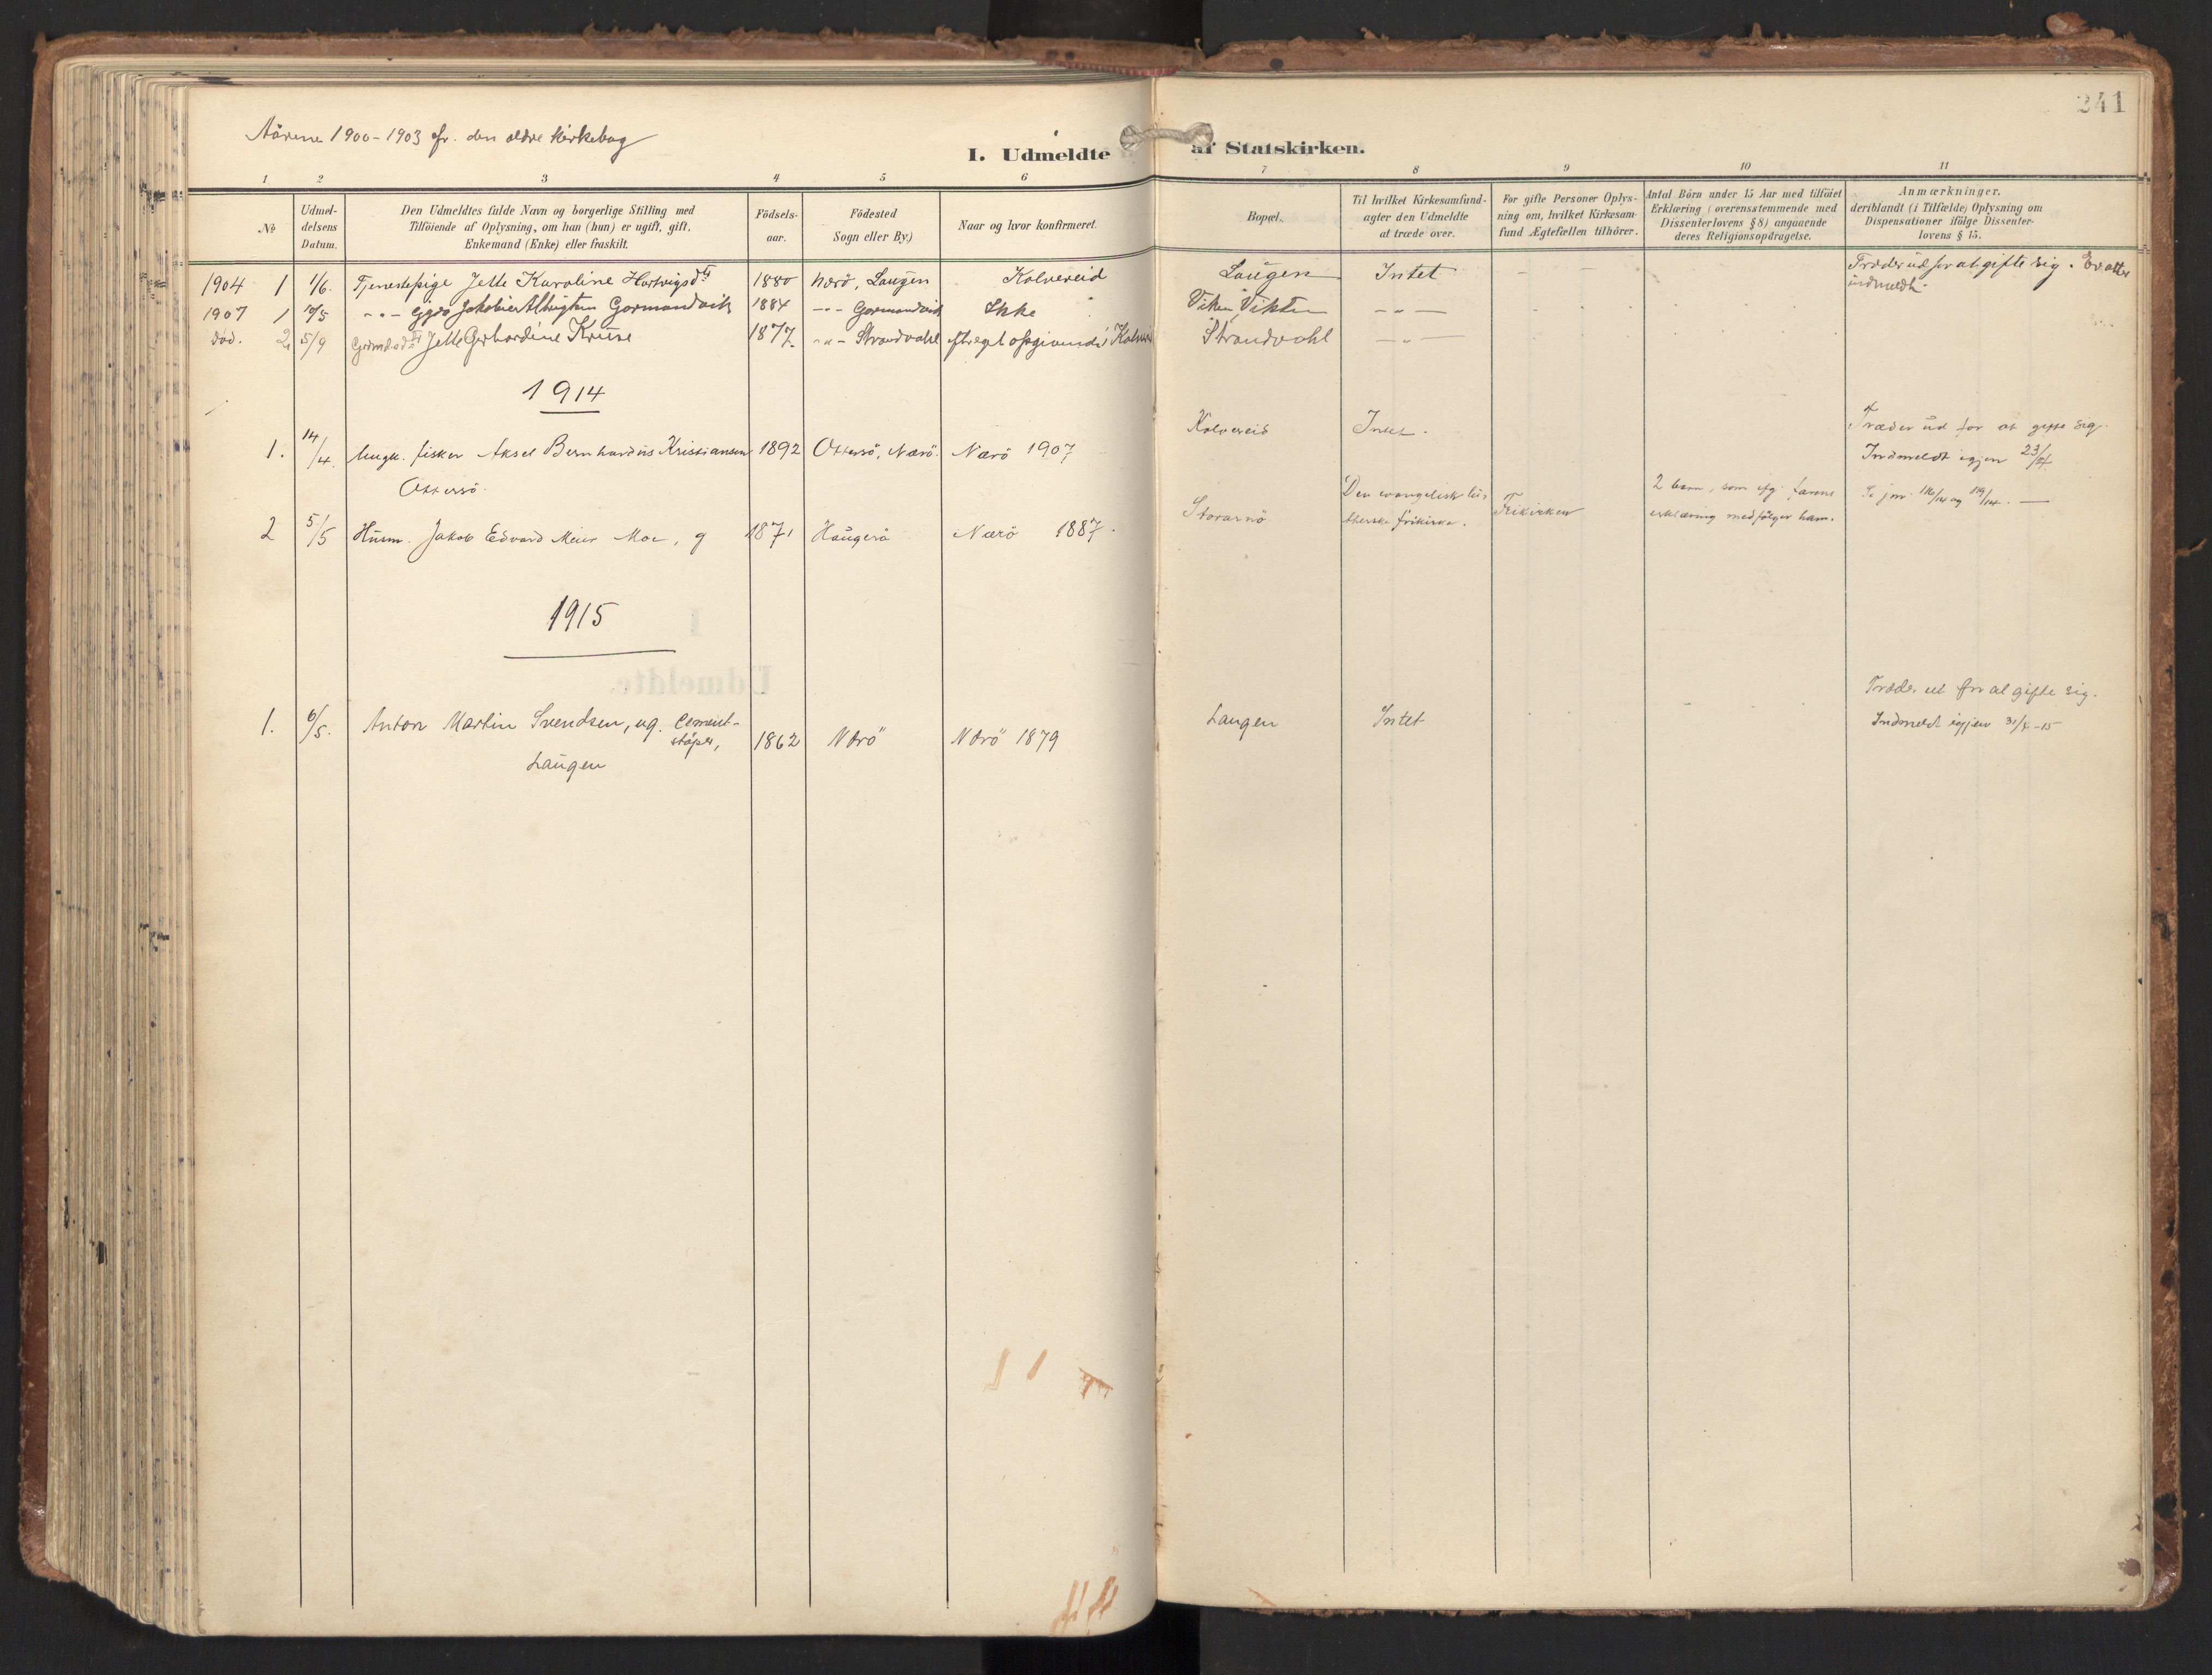 241
Aarene 1900-1903 cfr. den ældre kirkebog
I. Udmeldte af Statskirken.
1 2 3 4 5 6 7 8 9 10 11
№
Udmel-
delsens
Datum.
Den Udmeldtes fulde Navn og borgerlige Stilling med
Tilföiende af Oplysning, om han (hun) er ugift, gift,
Enkemand (Enke) eller fraskilt.
Födsels-
aar.
Födested
Sogn eller By.)
Naar og hvor konfirmeret.
Bopæl.
Til hvilket Kirkesamfund-
agter den Udmeldte
at træde over.
For gifte Personer Oplys-
ning om, hvilket Kirkesam-
fund Ægtefællen tilhörer.
Antal Börn under 15 Aar med tilföiet
Erklæring (overensstemmende med
Dissenterlovens § 8) angaaende
deres Religionsopdragelse.
Anmærkninger,
deriblandt (i Tilfælde) Oplysning om
Dispensationer ifölge Dissenter-
lovens § 15.
1904 1 1/6. Tjenestepige Jette Karoline Hartvigsdtr 1880 Nærö, Laugen Kolvereid Laugen Intet Træder ud for at gifte sig. Er atter
indmeldt.
1907 1 10/5 -"- Jakobine Gormandvik 1884 -"- Gormandvik Ikke Viken, Vikten -"-
2 5/9 Jette Gerhardine Kruse 1877 -"- Strandvahl Strandvahl -"-
1914
1. 14/4. Ungk. fisker Aksel Bernhardus Kristiansen 1892 Ottersö, Nærö. Nærö 1907 Kolvereid Intet. Træder ud for at gifte sig.
Ottersö. Indmeldt igjen 23/4.
2 5/5 Husm. Jakob Edvard Meier Moe, g 1871 Haugerø Nærö 1887. Den evangelisk lu-
therske frikirke. Frikirken 2 barn, som efg. farens
erklæring medfølger ham.
1915
1. 6/5. Anton Martin Svendsen, ug. Cement-
støper, 1862 Nærö Nærö 1879 Laugen Intet Træder ut for at gifte sig.
Laugen Indmeldt igjen 31/5-15
Udmeldte.